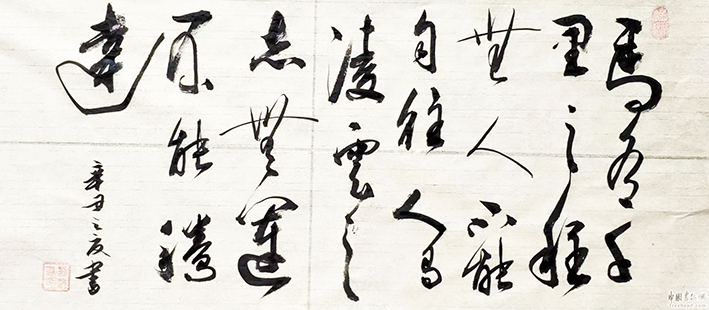 馬有千
里之程
無人不能
自往人有
凌雲之
志無運
不能騰
達
辛丑之夏書